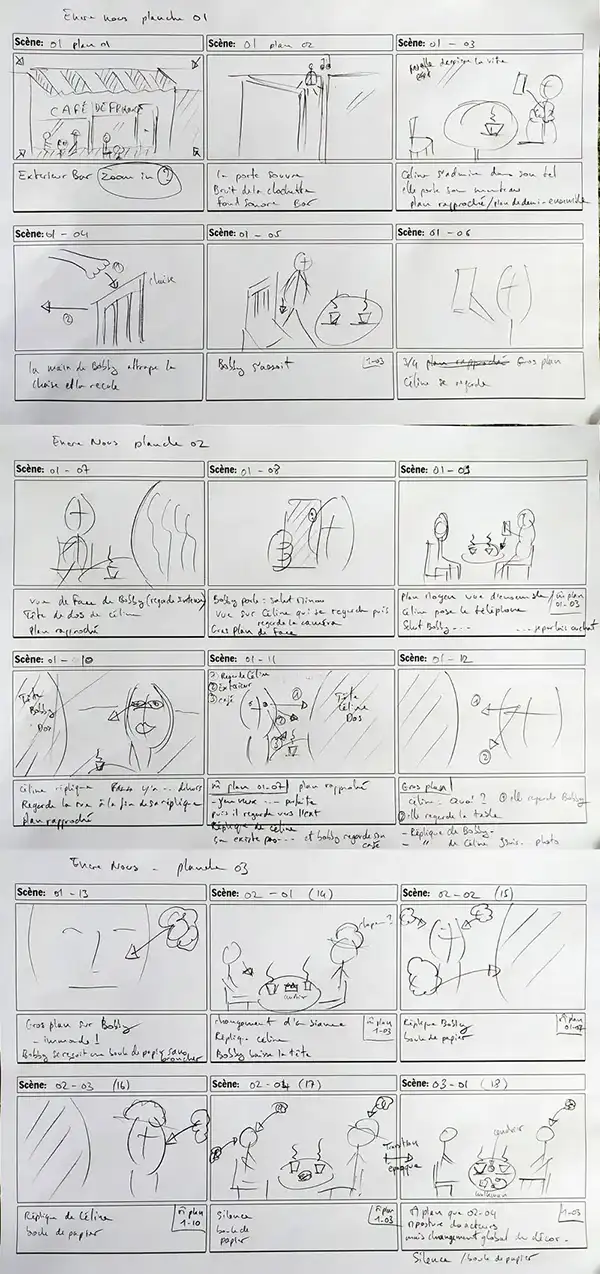 Entre nous planche 01
Scène: 01 plan 01
Scène: 01 plan 02
Scène: 01 - 03
CAFÉ DE FRANCE
Exterieur Bar Zoom in ?
la porte souvre
Bruit de la clochette
Fond Sonore Bar
Céline s'admire dans son tel
elle porte son manteau
plan rapproché / plan de demi-ensemble
Scène: 01 - 04
Scène: 01 - 05
Scène: 01 - 06
1
2
chaise
la main de Bobby attrape la
chaise et la recule
Bobby s'assoit
1-03
3/4 plan rapproché Gros plan
Céline se regarde
Entre Nous planche 02
Scène: 01 - 07
Scène: 01 - 08
Scène: 01 - 09
vue de Face de Bobby
Tête de dos de Céline
Plan rapproché
Bobby parle: Salut
vue sur Céline qui se regarde puis
regarde la caméra
Gros Plan de Face
Plan Moyen vue d'ensemble / m̂ plan
01-03
Céline pose le téléphone
Salut Bobby ---
Scène: 01 - 10
Scène: 01 - 11
Scène: 01 - 12
Tête
Bobby
Dos
1 Regarde Céline
2 Extérieur
3 café
1
2
3
Tête
Céline
Dos
1
2
Céline réplique --- dehors
Regarde la rue à la fin de sa réplique
plan rapproché
m̂ plan 01-07 plan rapproché
puis il regarde vers l'ext
Réplique de Céline
pas --- et bobby regarde son
café
Gros plan
Céline: Quoi? 1 elle regarde Bobby
2 elle regarde la table
- Réplique de Bobby -
- " de Céline photo
Entre Nous - planche 03
Scène: 01 - 13
Scène: 02 - 01 (14)
Scène: 02 - 02 (15)
chapeau?
cendrier
Gros plan sur Bobby
- immonde!
Bobby se reçoit une boule de papier sans
broncher
changement d'ambiance
Réplique Céline
Bobby baisse la tête
m̂ plan
1-03
Réplique Bobby
boule de papier
m̂ plan
01-07
Scène: 02 - 03 (16)
Scène: 02 - 04 (17)
Scène: 03 - 01 (18)
Transition
époque
cendrier
Réplique de Céline
boule de papier
m̂ plan
1-10
Silence
boule de
papier
m̂ plan
1-03
m̂ plan que 02-04
m̂ posture des acteurs
mais changement global du décor.
1-03
Silence / boule de papier